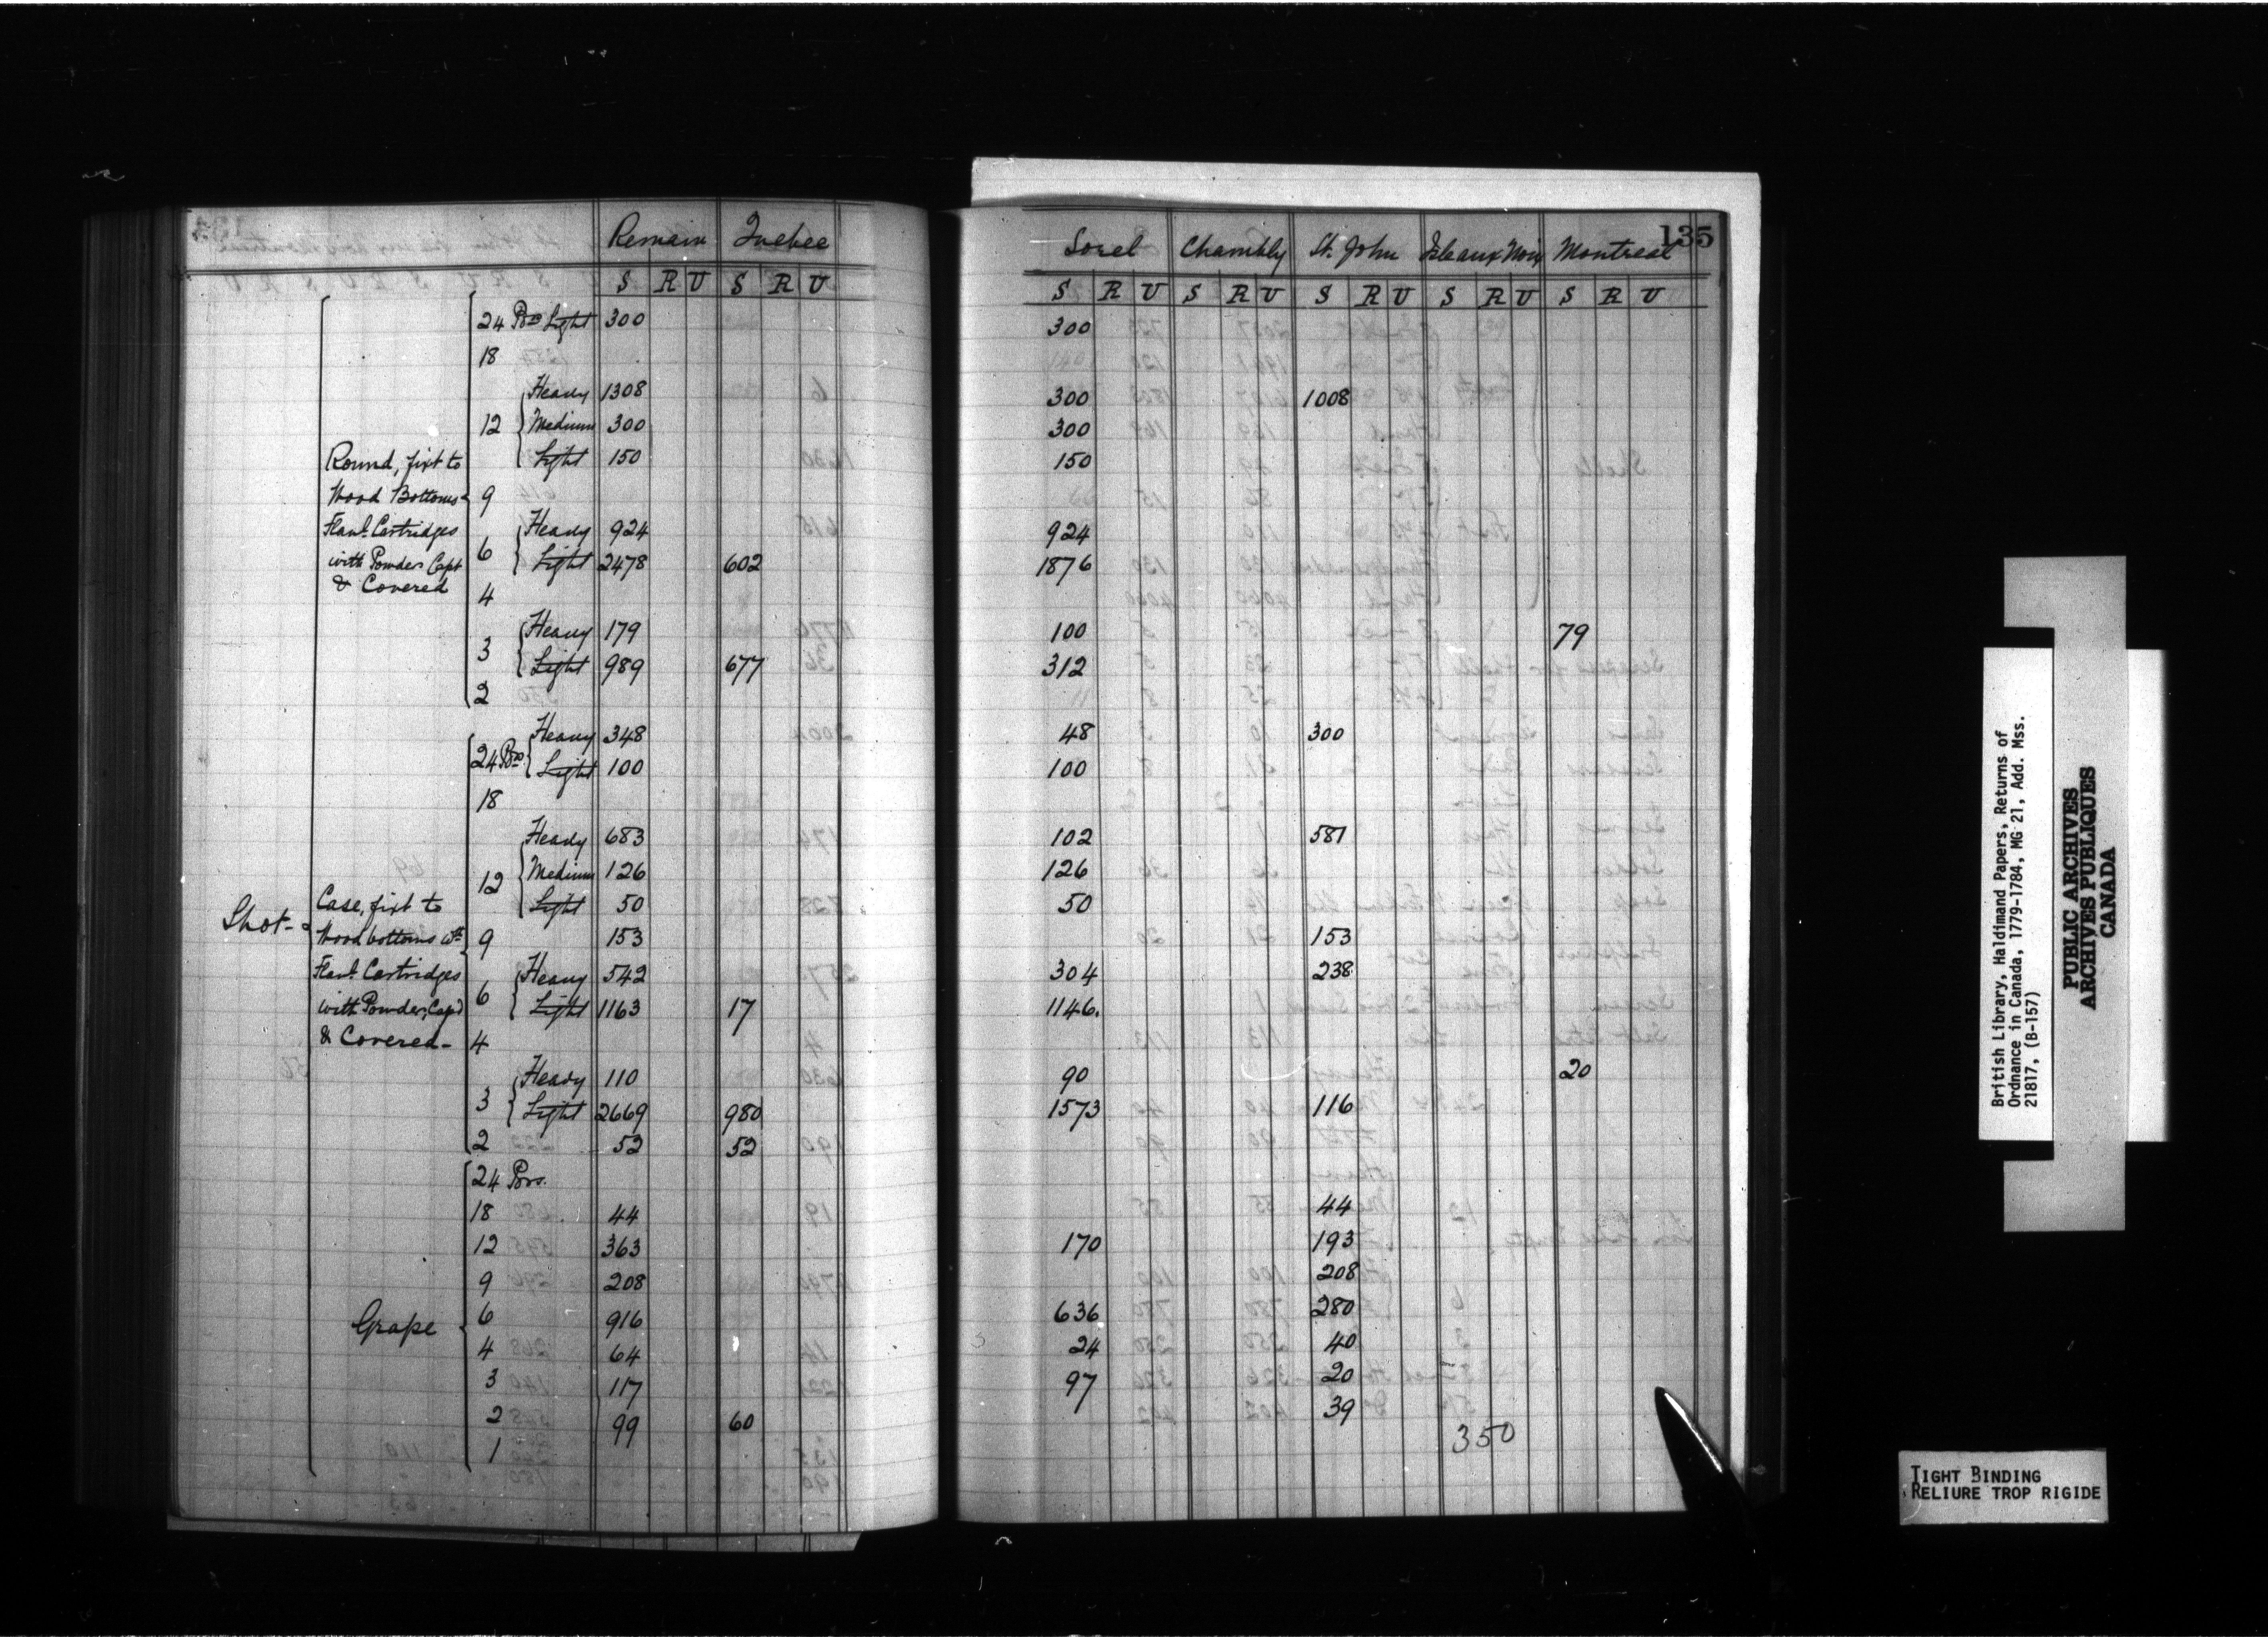 Remain Quebec Sorel Chambly St. John Isleaux Noix Montreal 135
S R U S R U S R U S R U S R U S R U S R U
24 Prs Light 300 300
18
Heavy 1308 300 1008
12 Medium 300 300
Light 150 150
Round, fixt to
Wood Bottoms 9
Flanl. Cartridges Heavy 924 924
with Powder Capt 6 Light 2478 602 1876
& Covered 4
Heavy 179 100 79
3 Light 989 677 312
2
Heavy 348 48 300
24 Prs Light 100 100
18
Heavy 683 102 581
12 Medium 126 126
Light 50 50
Shot - Case, fixt to
Wood bottoms wth 9 153 153
Flanl. Cartridges Heavy 542 304 238
with Powder, Cap'd 6 Light 1163 17 1146.
& Covered - 4
Heavy 110 90 20
3 Light 2669 980 1573 116
2 52 52
24 Prs.
18 44 44
12 363 170 193
9 208 208
Grape 6 916 636 280
4 64 24 40
3 117 97 20
2 99 60 39
1 350
British Library, Haldimand Papers, Returns of
Ordnance in Canada, 1779-1784, MG 21, Add. Mss.
21817, (B-157)
PUBLIC ARCHIVES
ARCHIVES PUBLIQUES
CANADA
TIGHT BINDING
RELIURE TROP RIGIDE